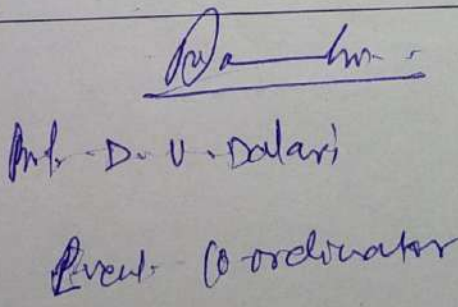 Prof. D. V. Dalavi
Event Co-ordinator